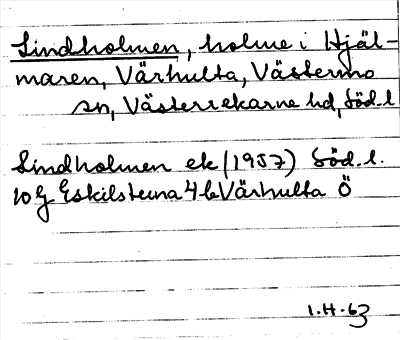 Lindholmen, holme i Hjäl-
maren, Värhulta, Västermo
sn, Västerrekarne hd, Söd. l
Lindholmen ek (1957) Söd. l.
10 G Eskilstuna 4 b Värhulta Ö
1.H.63